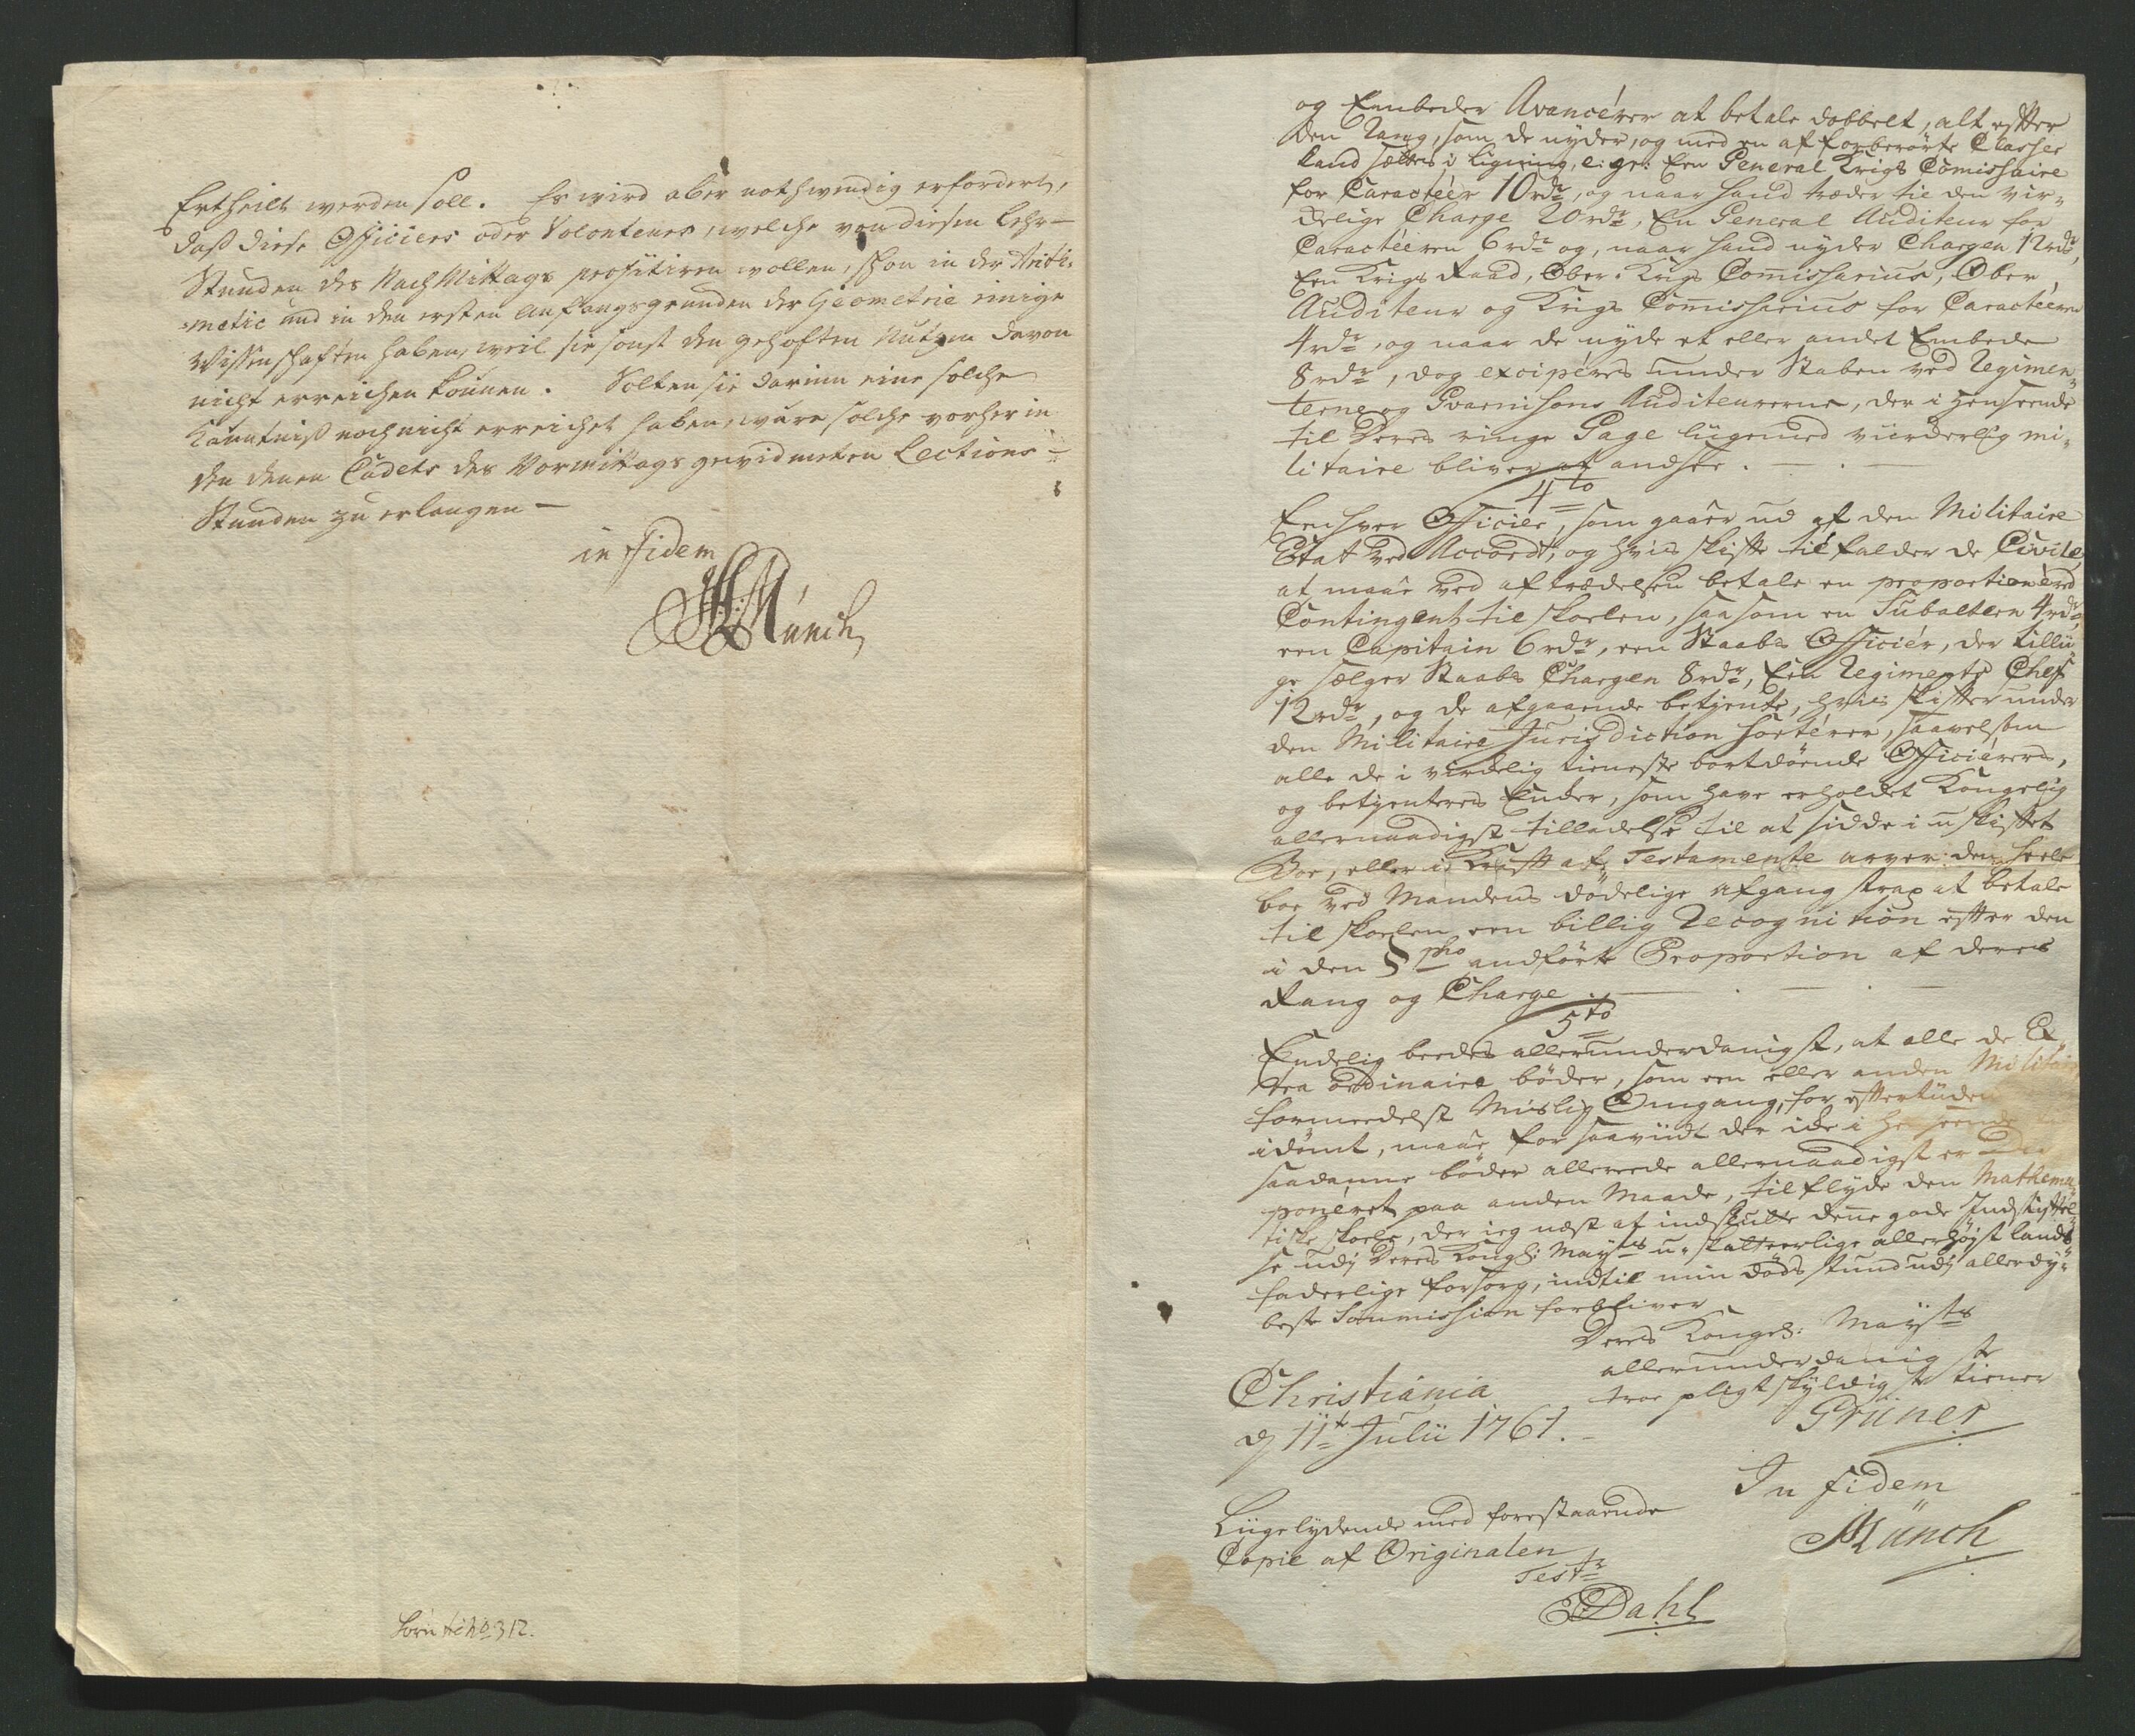 Ertheilt werden soll. Es wird aber nothwendig erfordert,
daß diese Officiers oder Volonteurs, welche von diesen Lehr-
Stunden des Nach Mittags profitiren wollen, schon in der Arith-
-metic und in den ersten Anfangsgrunden der Geometrie einige
Wissenschaften haben, weil sie sonst den gehoften Nutzen davon
nicht erreichen können. Solten sie darinn eine solche
Känntniß noch nicht erreichet haben, wäre solche vorher in
den denen Cadets des Vormittags gewidmeten Lections-
Stunden zu erlangen —
in fidem
Münch
Lorn: tc: No 312.
og Embeder Avancérer at betale dobbelt, alt efter
den Rang, som de nyder, og med en af forberörte Classer
kand sættes i Ligning, e: gr: Een General Krigs Comissaire
for Caractéer 10 rdr, og naar hand træder til den vir-
kelige Charge 20 rdr, En General Auditeur for
Caractéeren 6 rdr og, naar hand nyder Chargen 12 rdr,
Een Krigs Raad, Ober-Krigs Comissarius, Ober
Auditeur og Krigs Comissarius for Caractéeren
4 rdr, og naar de nyde et eller andet Embede
8 rdr, dog excipéres under Staben ved Regimen-
terne og Gvarnisons Auditeurerne, der i henseende
til Deres ringe Gage ligemed würderlig mi-
litaire bliver at andsee. — . —
4to
Enhver Officier, som gaaer ud af den Militaire
Etat ved Accord, og hvis skifte tilfalder de Civile,
at maae ved aftrædelsen betale en proportionéred
Contingent til skoelen, saasom en Subaltern 4 rdr,
een Capitain 6 rdr, een Staabs Officiér, der tillii-
ge sælger Staabs Chargen 8 rdr, Een Regiments Chef
12 rdr, og de afgaaende betjente, hvis skifter under
den Militaire Jurisdiction sortérer, saavelsom
alle de i virkelig tieneste bortdöende Officiérers,
og betjenteres Enker, som have erholdet Kongelig
allernaadigst tilladelse til at sidde i uskiftet
Boe, eller i Kraft af Testamente arver den heele
boe ved Mandens dödelige afgang strax at betale
til skoelen een billig Recognition efter den
i den § pho andförte Proportion af deres
Rang og Charge . — . — . —
5to
Endelig beedes allerunderdanigst, at alle de Ex-
tra ordinaire böder, som een eller anden Militair
formedelst Mislig Omgang, for eftertiiden
idömt, maae for saaviidt der ide i henseende
saadanne böder allereede allernaadigst er dis-
ponéret paa anden Maade, tilflyde den Mathema-
tiske skoele, der ieg næst at indslutte denne gode Indstiftel-
se udj Deres Kongl: Mayts u-skatteerlige allerhöyst lands
faderlige forsorg, indtil min döds stund udj allerdy-
beste Soumission forbliver
Deres Kongel: Mayts
allerunderdanigste
troe pligtskyldigste tiener
Christiania
d 11te Julii 1761.
Grüner
In Fidem
Münch
Liigelydende med forestaaende
Copie af Originalen
Testr
Dahl